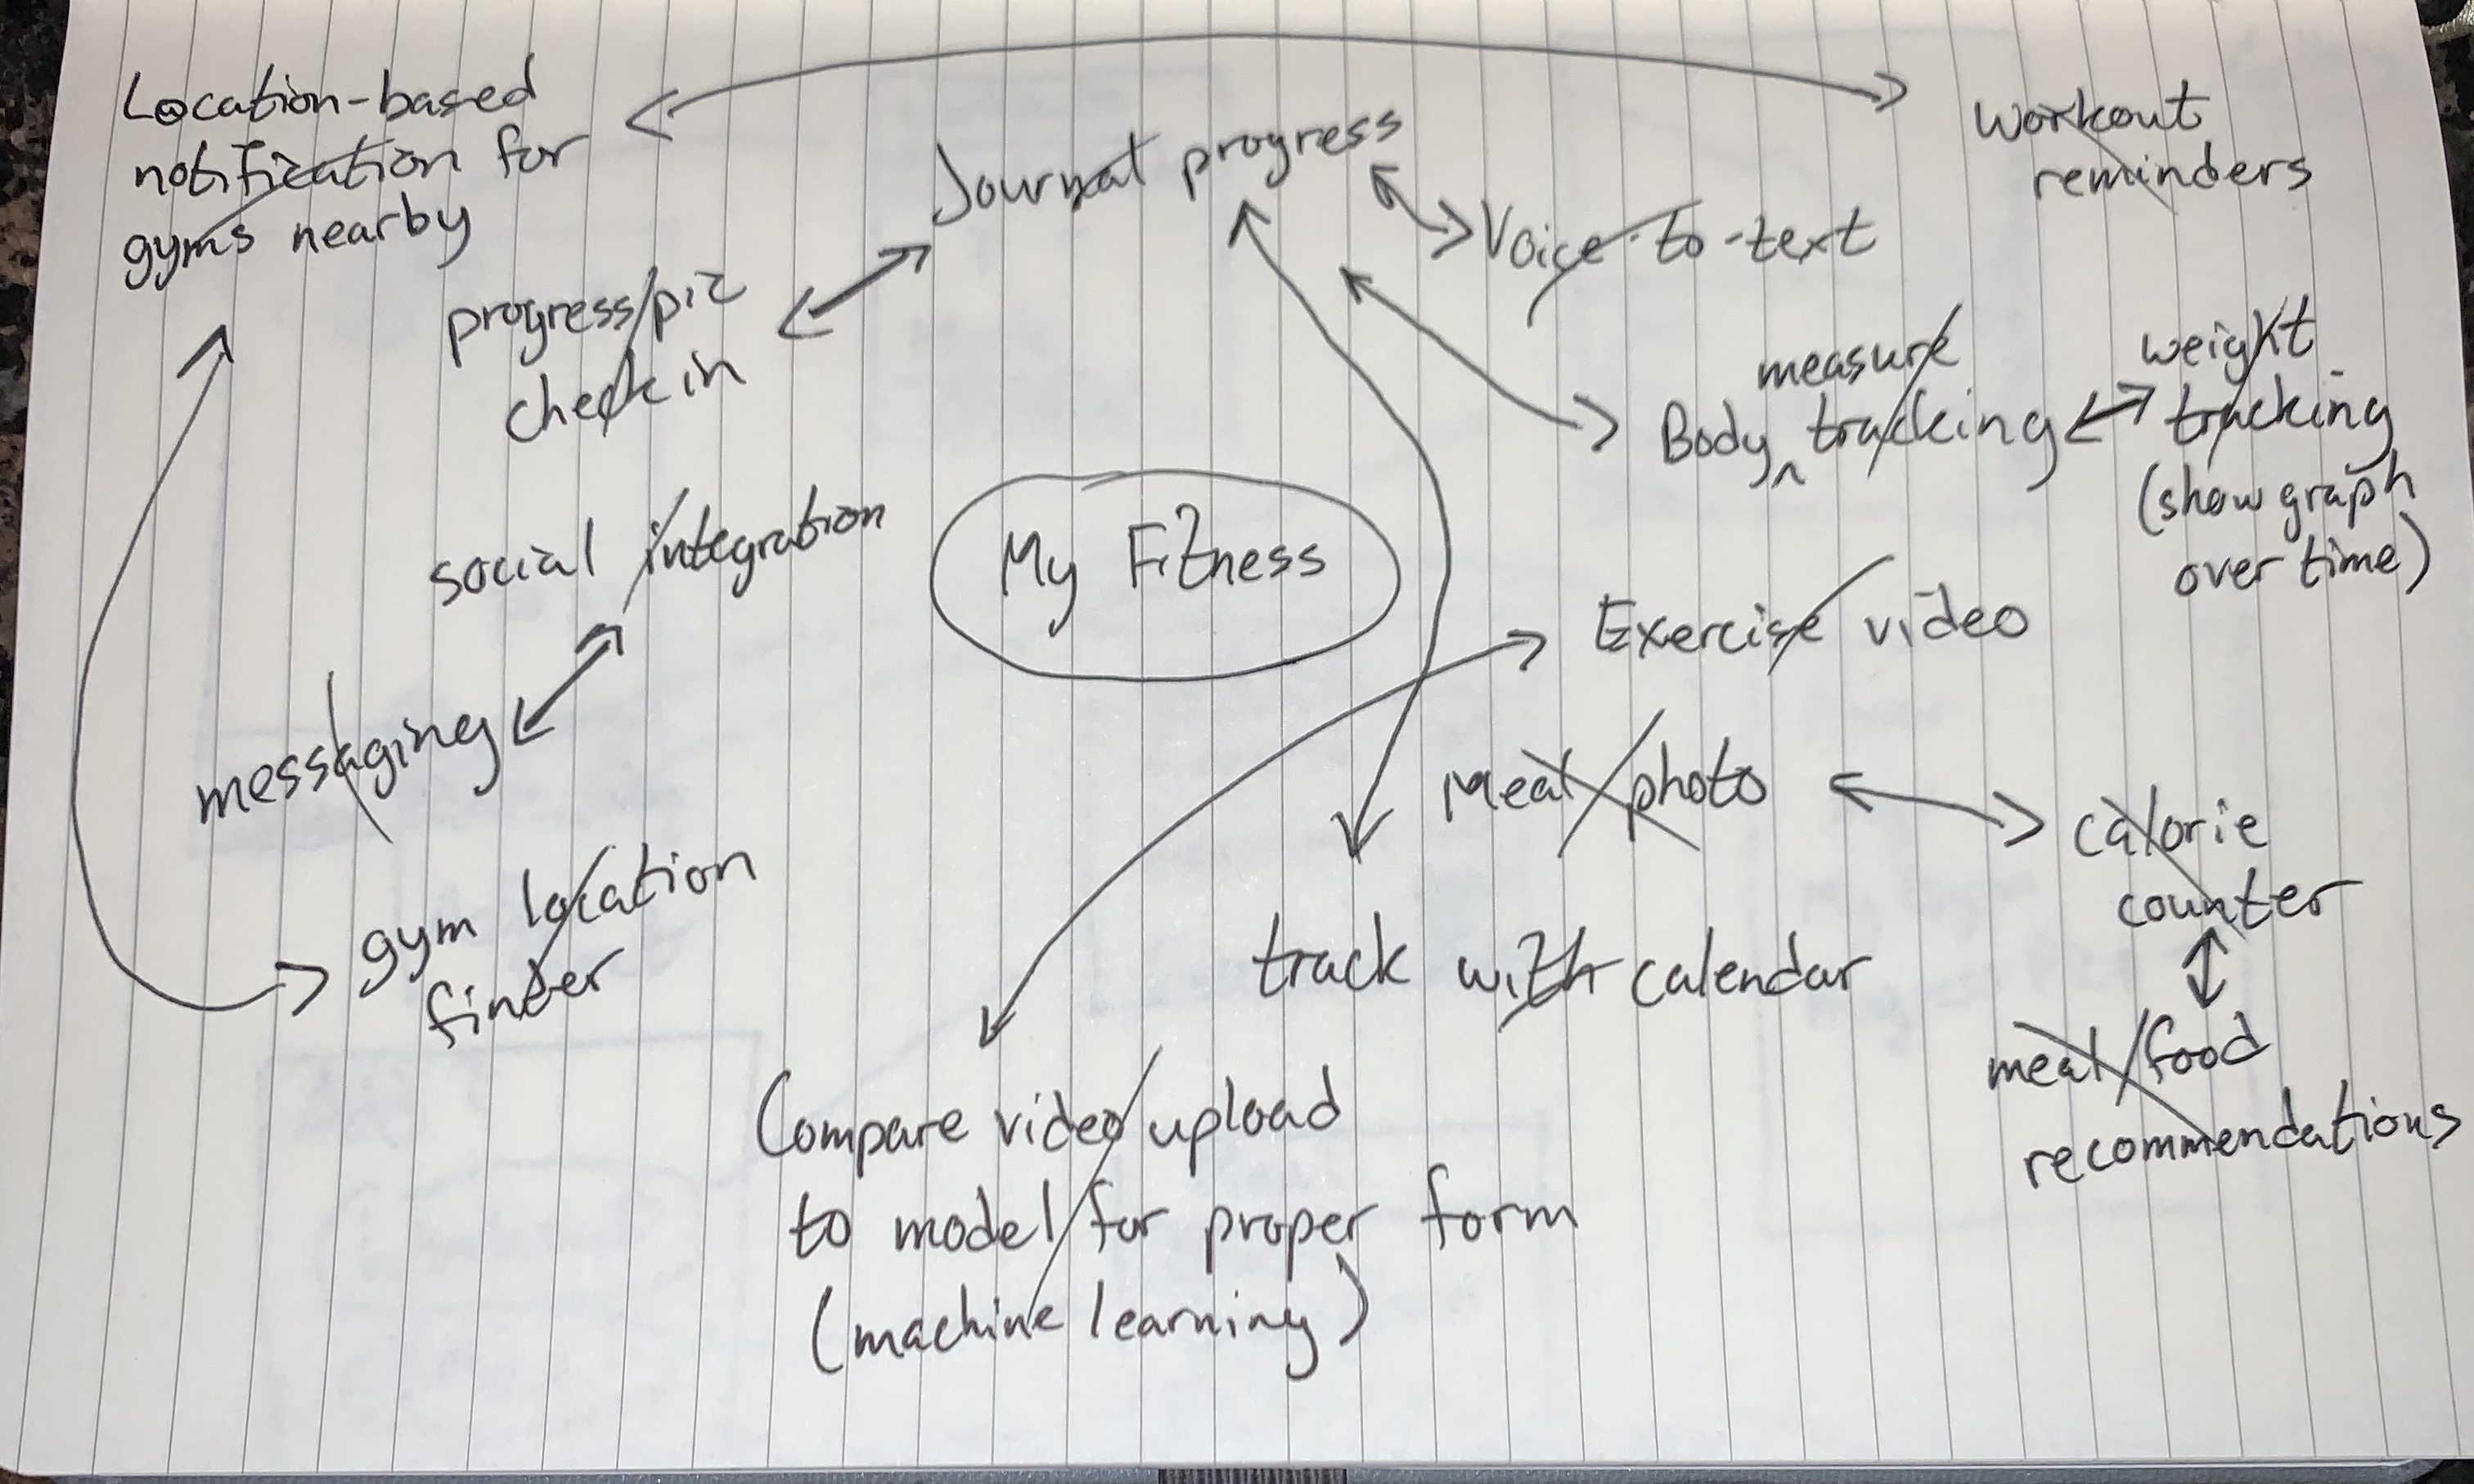 Location-based
notification for
gyms nearby
Journal progress
workout
reminders
Voice-to-text
progress/pic
check in
Body measure tracking
weight
tracking
(show graph
over time)
social integration
My Fitness
Exercise video
messaging
Meal/photo
calorie
counter
gym location
finder
track with calendar
meal/food
recommendations
Compare video upload
to model for proper form
(machine learning)